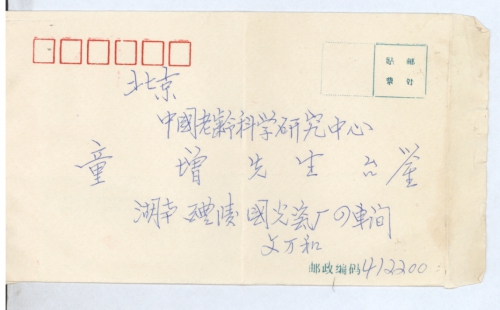 贴邮
票处
北京
中國老齡科学研究中心
童增先生台鉴
湖南醴陵國光瓷厂04車间
文万和
邮政编码412200